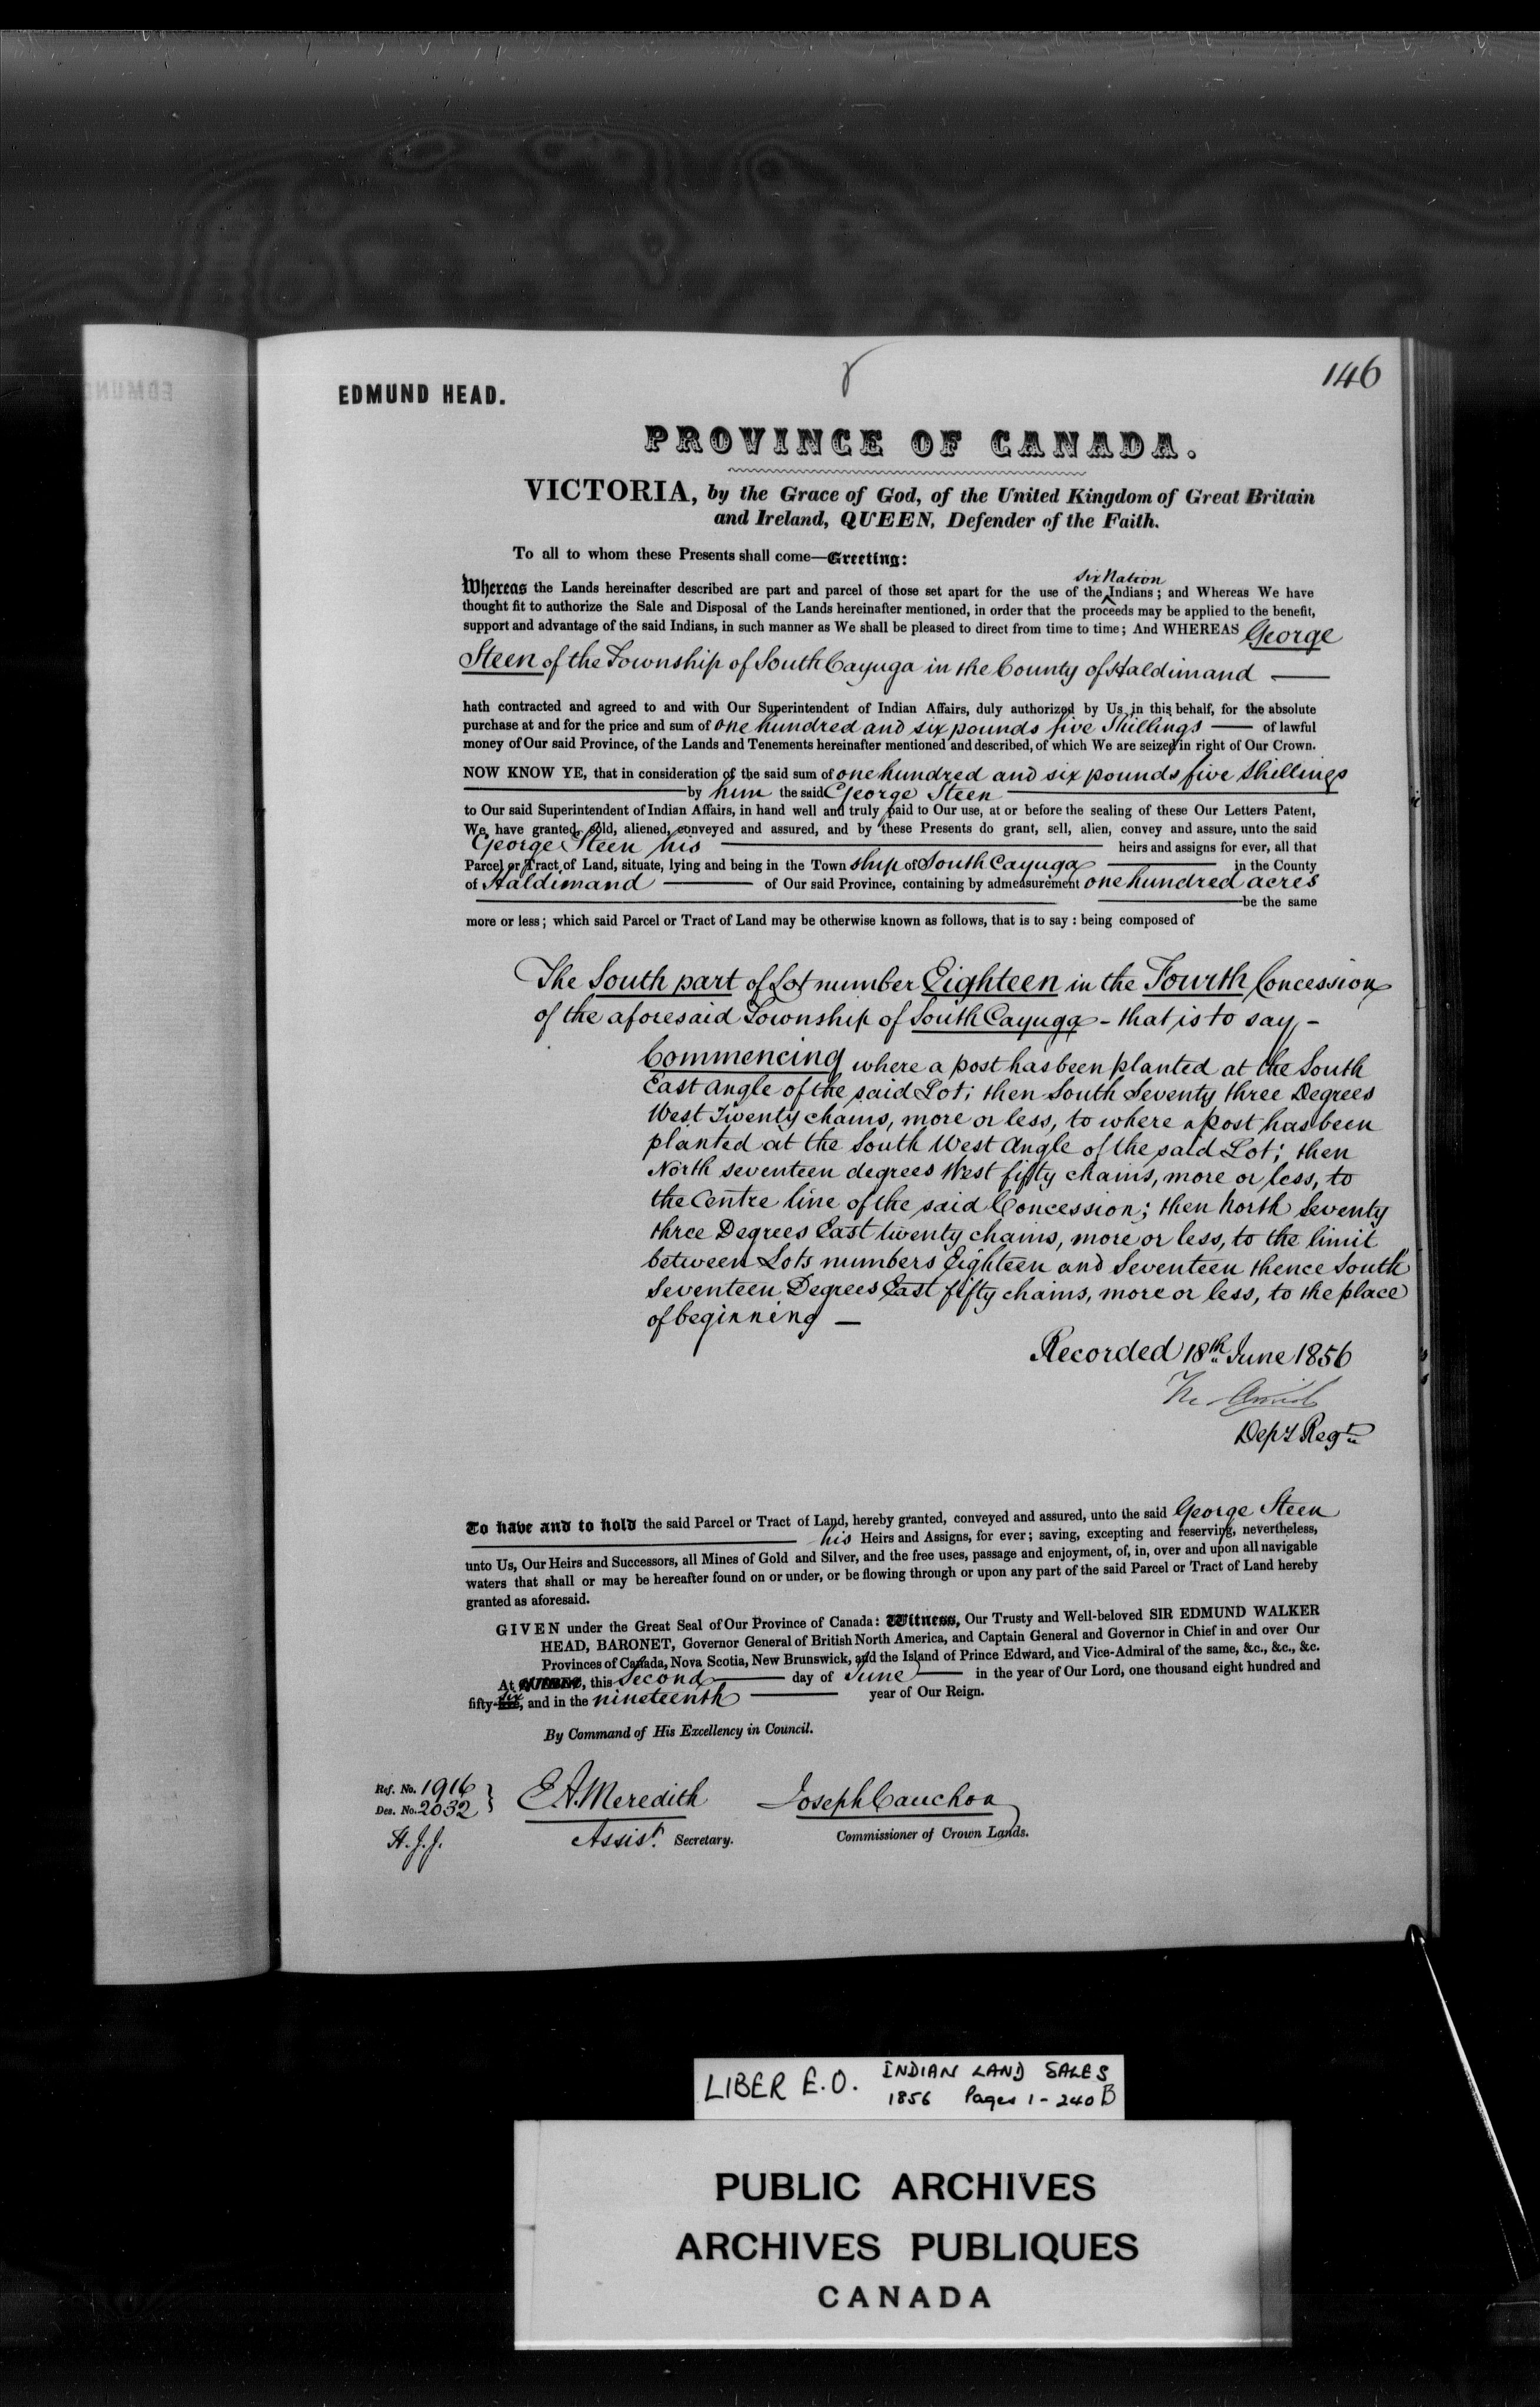 146
EDMUND HEAD.
PROVINCE OF CANADA.
VICTORIA, by the Grace of God, of the United Kingdom of Great Britain
and Ireland, QUEEN, Defender of the Faith.
To all to whom these Presents shall come—Greeting:
Six Nation
Whereas the Lands hereinafter described are part and parcel of those set apart for the use of the Indians; and Whereas We have
thought fit to authorize the Sale and Disposal of the Lands hereinafter mentioned, in order that the proceeds may be applied to the benefit,
support and advantage of the said Indians, in such manner as We shall be pleased to direct from time to time; And WHEREAS George
Steen of the Township of South Cayuga in the County of Haldimand —
hath contracted and agreed to and with Our Superintendent of Indian Affairs, duly authorized by Us, in this behalf, for the absolute
purchase at and for the price and sum of one hundred and six pounds five Shillings — of lawful
money of Our said Province, of the Lands and Tenements hereinafter mentioned and described, of which We are seized in right of Our Crown.
NOW KNOW YE, that in consideration of the said sum of one hundred and six pounds five Shillings
— by him the said George Steen —
to Our said Superintendent of Indian Affairs, in hand well and truly paid to Our use, at or before the sealing of these Our Letters Patent,
We have granted, sold, aliened, conveyed and assured, and by these Presents do grant, sell, alien, convey and assure, unto the said
George Steen his — heirs and assigns for ever, all that
Parcel or Tract of Land, situate, lying and being in the Town ship of South Cayuga — in the County
of Haldimand — of Our said Province, containing by admeasurement one hundred acres
— be the same
more or less; which said Parcel or Tract of Land may be otherwise known as follows, that is to say: being composed of
The South part of Lot number Eighteen in the Fourth Concession
of the aforesaid Township of South Cayuga - that is to say, -
Commencing where a post has been planted at the South
East angle of the said Lot; then South Seventy three Degrees
West Twenty chains, more or less, to where a post has been
planted at the South West Angle of the said Lot; then
North seventeen degrees West fifty chains, more or less, to
the Centre line of the said Concession; then North Seventy
three Degrees East twenty chains, more or less, to the limit
between Lots numbers Eighteen and Seventeen thence South
Seventeen Degrees East fifty chains, more or less, to the place
of beginning —
Recorded 18th June 1856
Depy Regr
To have and to hold the said Parcel or Tract of Land, hereby granted, conveyed and assured, unto the said George Steen
— his Heirs and Assigns, for ever; saving, excepting and reserving, nevertheless,
unto Us, Our Heirs and Successors, all Mines of Gold and Silver, and the free uses, passage and enjoyment, of, in, over and upon all navigable
waters that shall or may be hereafter found on or under, or be flowing through or upon any part of the said Parcel or Tract of Land hereby
granted as aforesaid.
GIVEN under the Great Seal of Our Province of Canada: Witness, Our Trusty and Well-beloved SIR EDMUND WALKER
HEAD, BARONET, Governor General of British North America, and Captain General and Governor in Chief in and over Our
Provinces of Canada, Nova Scotia, New Brunswick, and the Island of Prince Edward, and Vice-Admiral of the same, &c., &c., &c.
At, this Second — day of June — in the year of Our Lord, one thousand eight hundred and
fifty-six, and in the nineteenth — year of Our Reign.
By Command of His Excellency in Council.
Ref. No. 1916
Des. No. 2032
E. A. Meredith
Joseph Cauchon
Assist. Secretary.
Commissioner of Crown Lands.
LIBER E.O. INDIAN LAND SALES
1856 Pages 1 - 240 B
PUBLIC ARCHIVES
ARCHIVES PUBLIQUES
CANADA